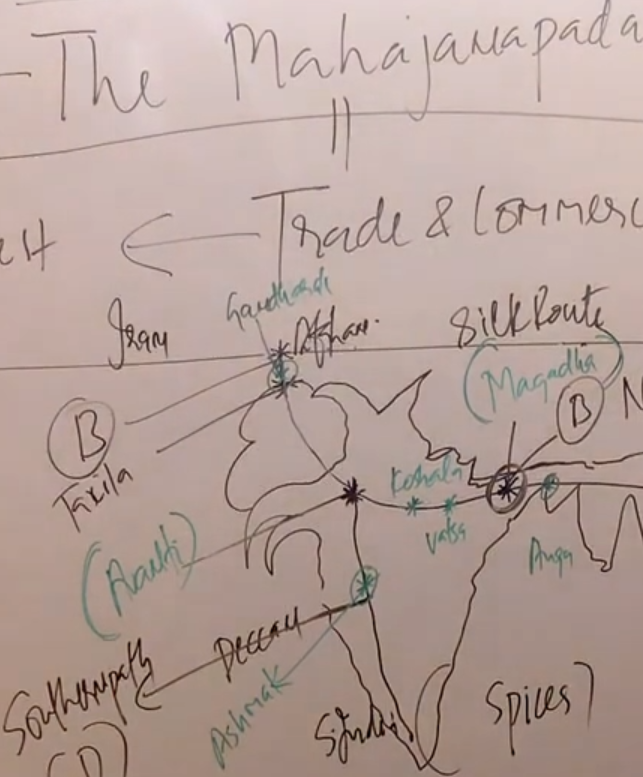 The Mahajanapada
Trade & Commerc
Gandhara
Iran
Afghan.
Silk Route
(Magadha)
B
B
N
Taxila
Koshala
Vatsa
Anga
(Avanti)
Deccan
Southernpath
(D)
Ashmak
Spices)